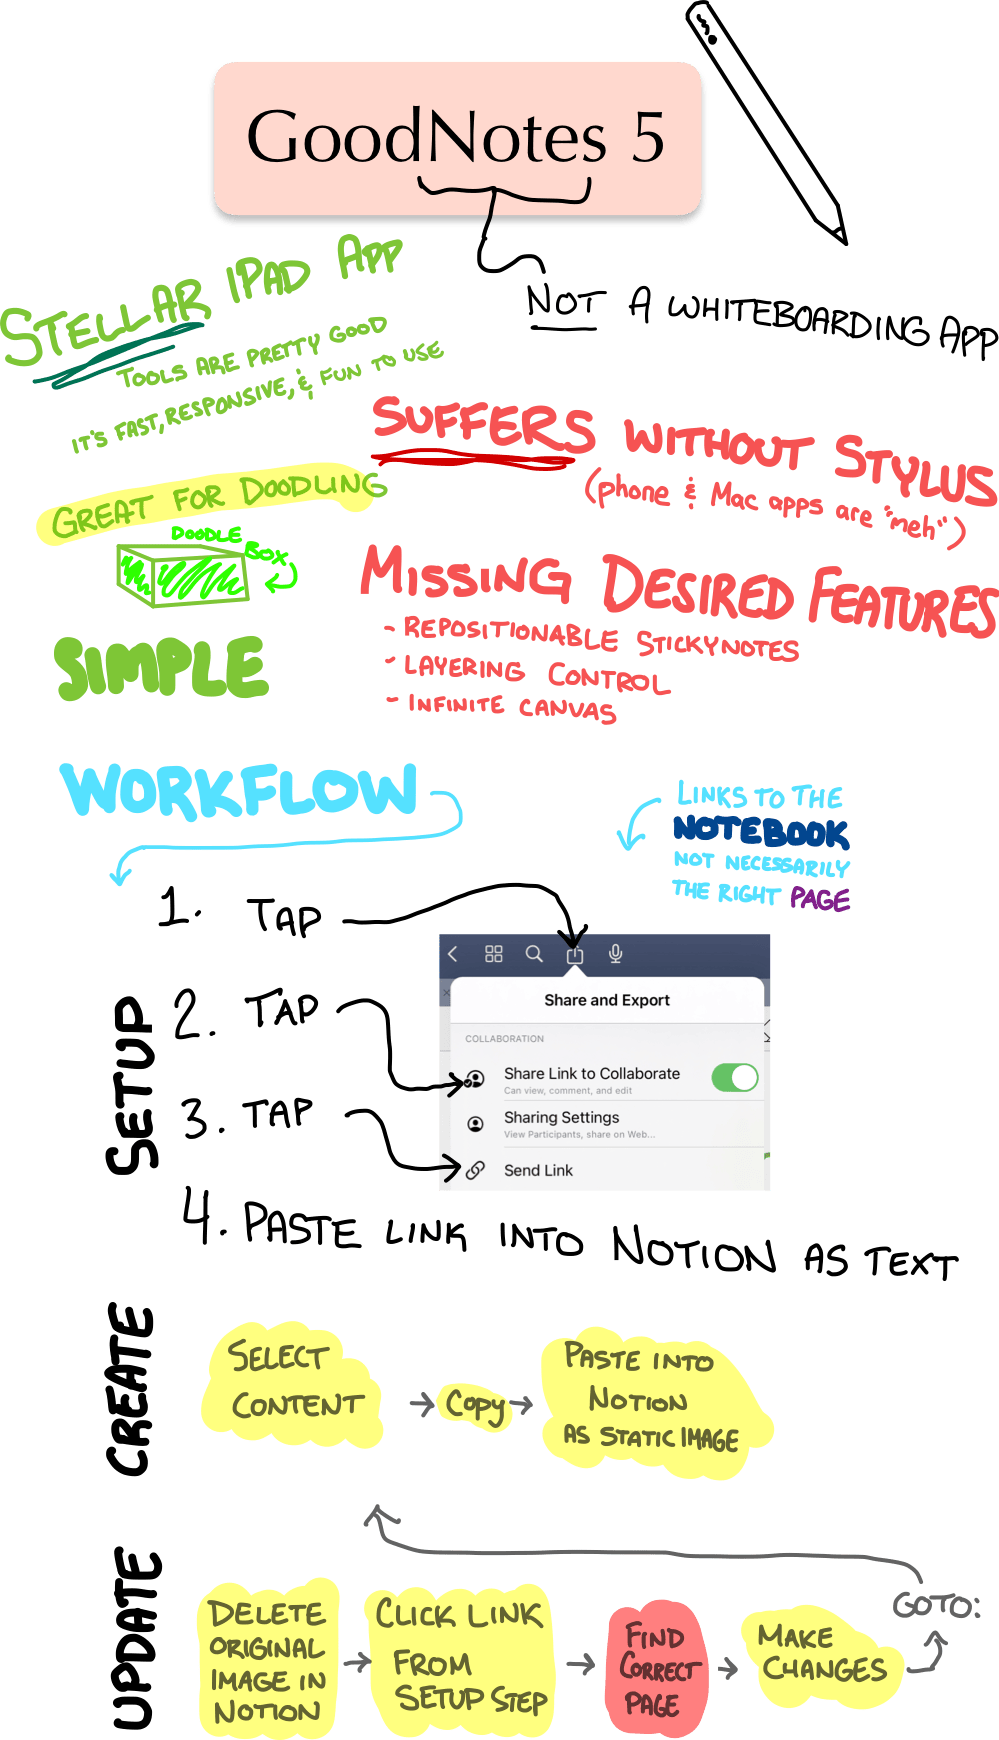 GoodNotes 5
NOT A WHITEBOARDING APP
STELLAR IPAD APP
TOOLS ARE PRETTY GOOD
IT'S FAST, RESPONSIVE, & FUN TO USE
SUFFERS WITHOUT STYLUS
(phone & Mac apps are "meh")
GREAT FOR DOODLING
DOODLE
BOX
MISSING DESIRED FEATURES
- REPOSITIONABLE STICKYNOTES
- LAYERING CONTROL
- INFINITE CANVAS
SIMPLE
WORKFLOW
LINKS TO THE
NOTEBOOK
NOT NECESSARILY
THE RIGHT PAGE
SETUP
1. TAP
2. TAP
3. TAP
Share and Export
COLLABORATION
Share Link to Collaborate
Can view, comment, and edit
Sharing Settings
View Participants, share on Web...
Send Link
4. PASTE LINK INTO NOTION AS TEXT
CREATE
SELECT
CONTENT
Copy
PASTE INTO
NOTION
AS STATIC IMAGE
UPDATE
DELETE
ORIGINAL
IMAGE IN
NOTION
CLICK LINK
FROM
SETUP STEP
FIND
CORRECT
PAGE
MAKE
CHANGES
GOTO: